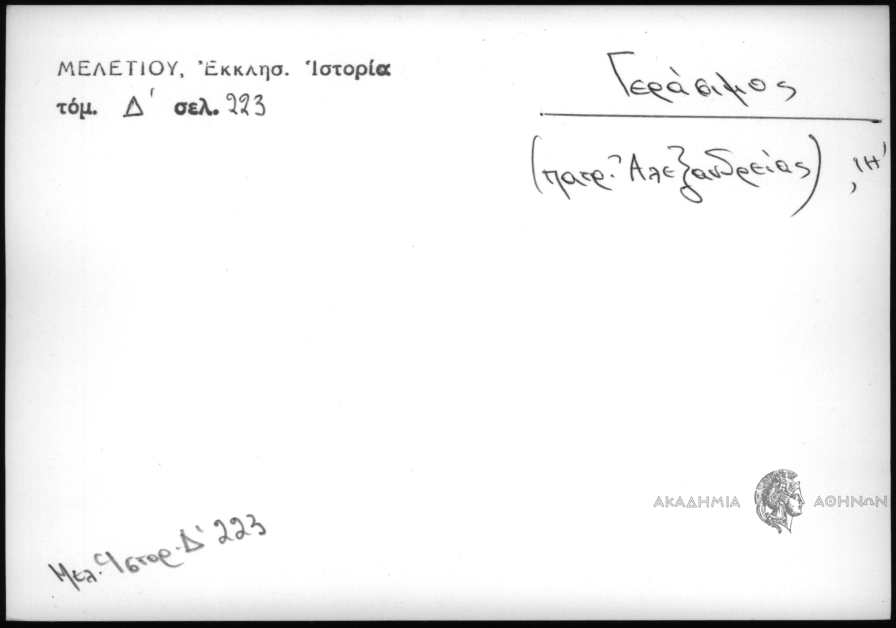 ΜΕΛΕΤΙΟΥ, Ἐκκλησ. Ἱστορία
τόμ. Δ' σελ. 223
Γεράσιμος
(πατρ. Ἀλεξανδρείας) ,ΙΗ'
ΑΚΑΔΗΜΙΑ ΑΘΗΝΩΝ
Μελ. Ἱστορ. Δ' 223